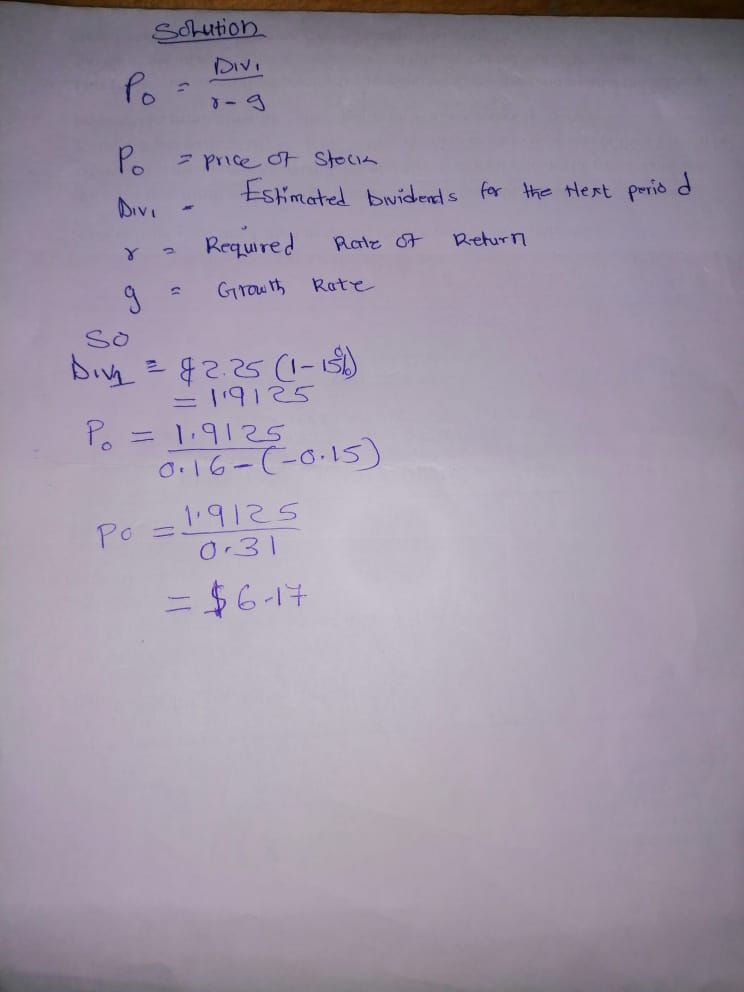 Solution
P₀ = Div₁
r-g
P₀ = price of Stock
Div₁ = Estimated Dividends for the Next period
r = Required Rate of Return
g = Growth Rate
So
Div₁ = $2.25 (1-15%)
= 1.9125
P₀ = 1.9125
0.16-(-0.15)
P0 = 1.9125
0.31
= $6.17